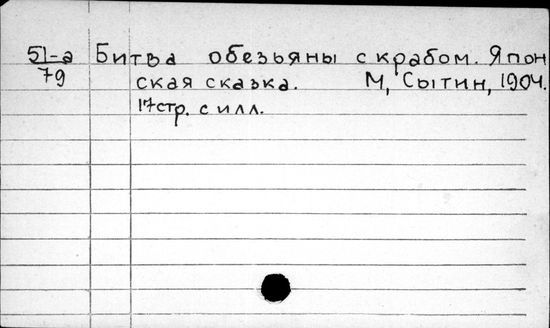 51-а Битва обезьяны с крабом. Япон
79 ская сказка. М, Сытин, 1904.
17стр. с илл.